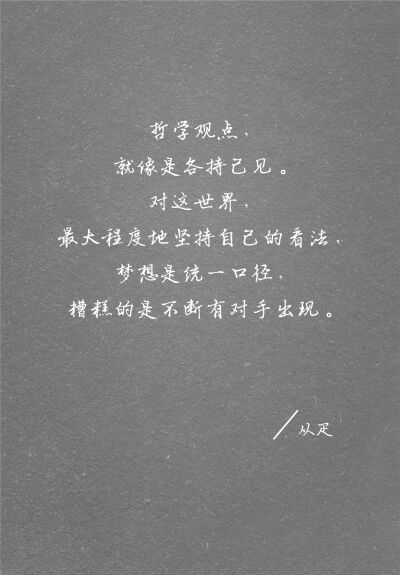 哲学观点，
就像是各持己见。
对这世界，
最大程度地坚持自己的看法，
梦想是统一口径，
糟糕的是不断有对手出现。
／从疋